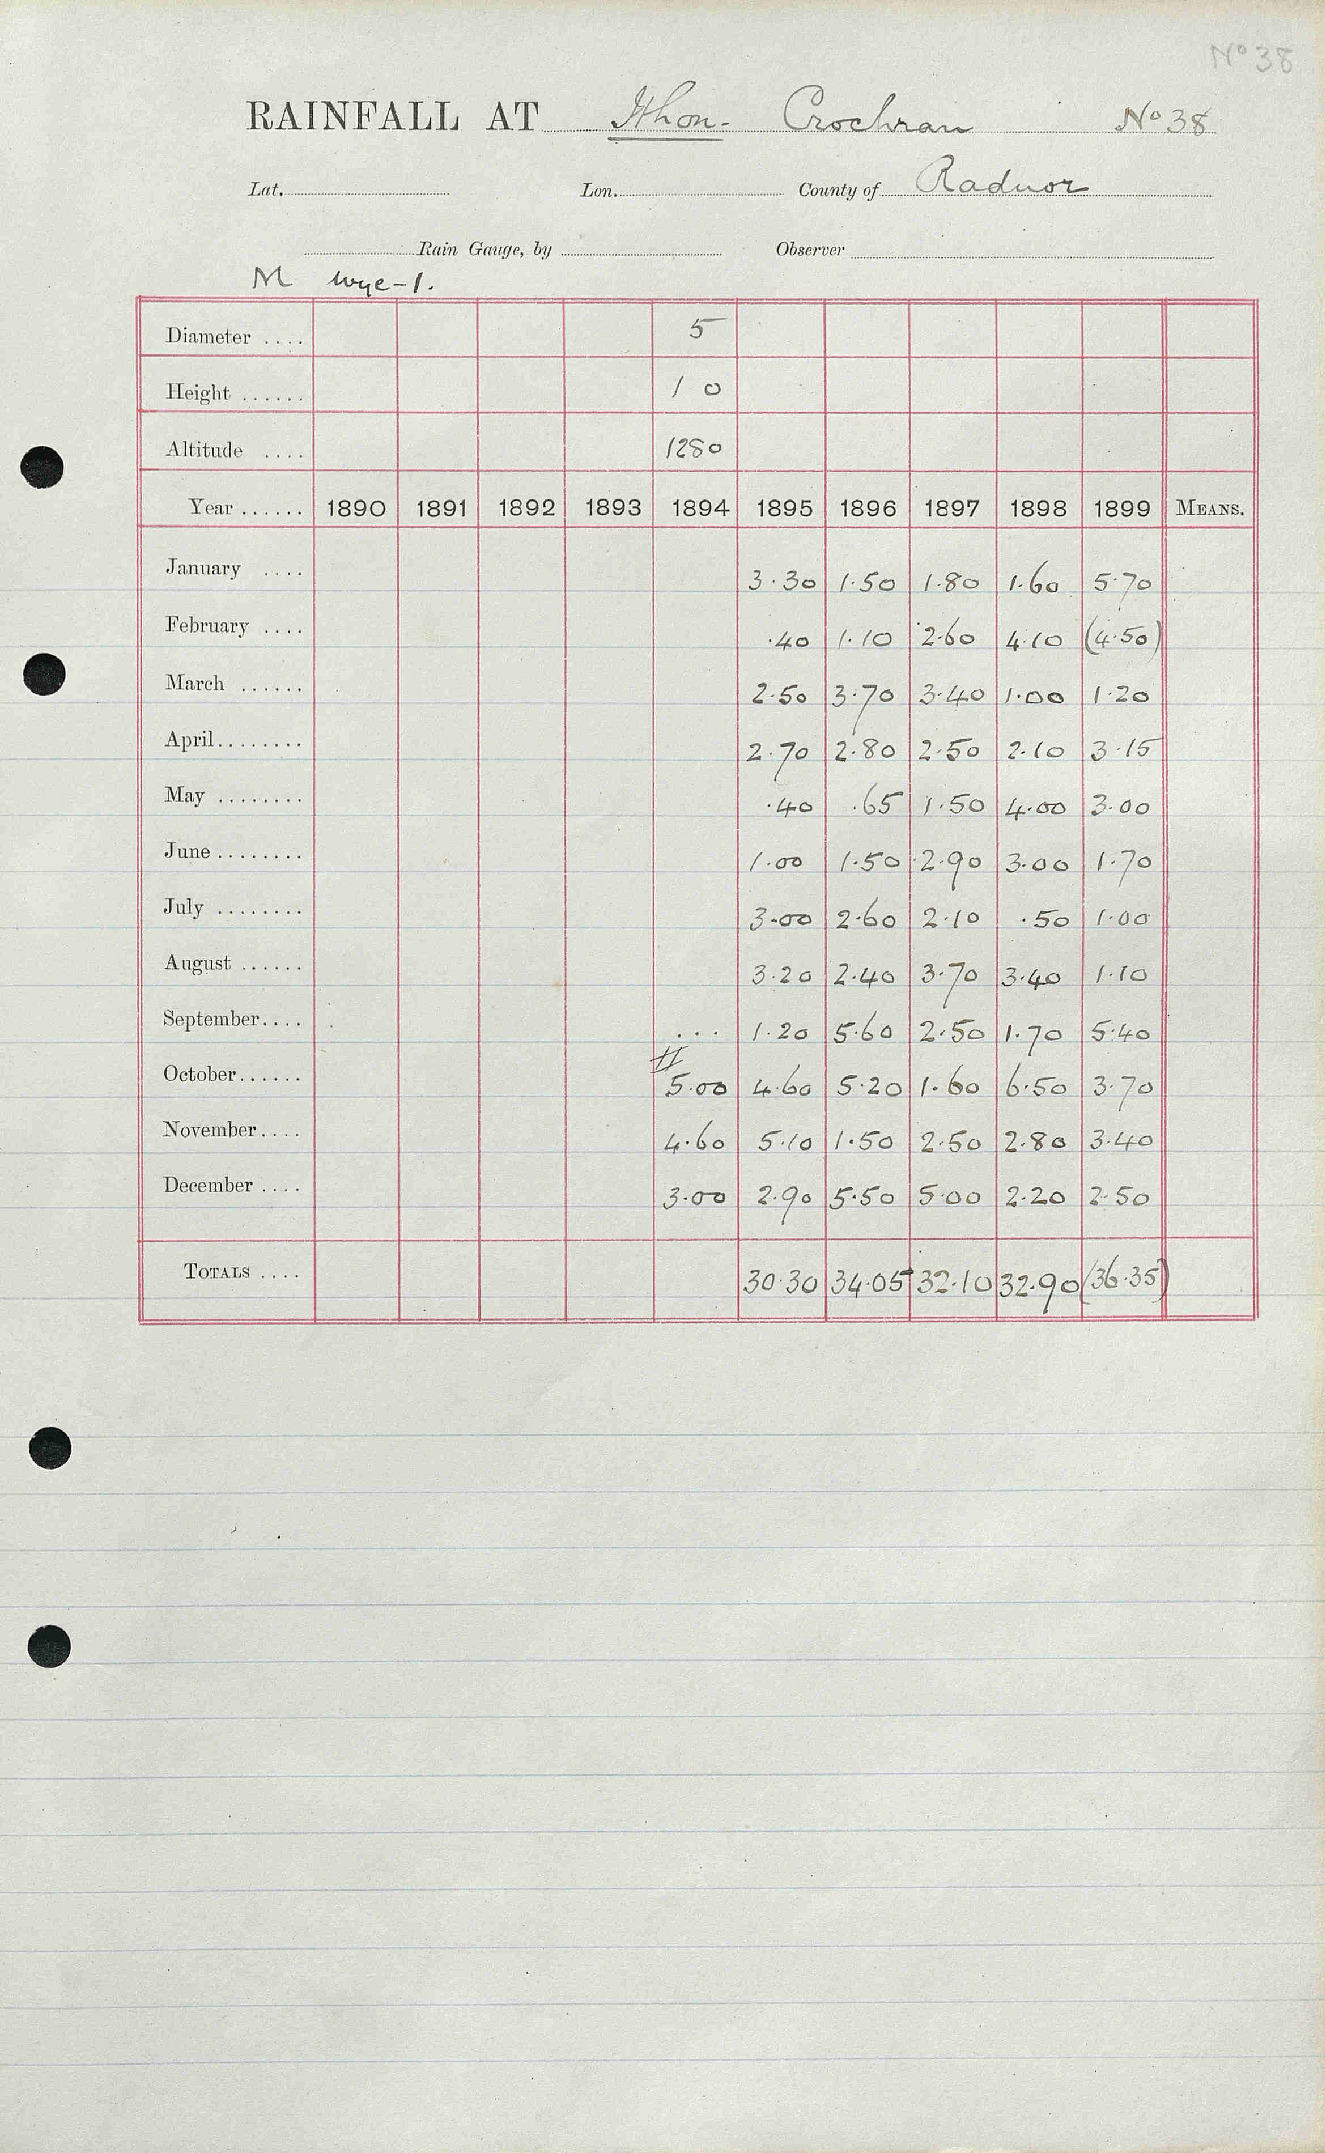 No 38
RAINFALL AT Ithon - Crochran No 38
Lat. Lon. County of Radnor
Rain Gauge, by Observer
M Wye-1.
Diameter .... 5
Height ...... 1 0
Altitude .... 1280
Year ...... 1890 1891 1892 1893 1894 1895 1896 1897 1898 1899 MEANS.
January .... 3.30 1.50 1.80 1.60 5.70
February .... .40 1.10 2.60 4.10 (4.50)
March ...... 2.50 3.70 3.40 1.00 1.20
April........ 2.70 2.80 2.50 2.10 3.15
May ........ .40 .65 1.50 4.00 3.00
June ........ 1.00 1.50 2.90 3.00 1.70
July ........ 3.00 2.60 2.10 .50 1.00
August ...... 3.20 2.40 3.70 3.40 1.10
September.... ... 1.20 5.60 2.50 1.70 5.40
October...... 5.00 4.60 5.20 1.60 6.50 3.70
November.... 4.60 5.10 1.50 2.50 2.80 3.40
December .... 3.00 2.90 5.50 5.00 2.20 2.50
TOTALS .... 30.30 34.05 32.10 32.90 (36.35)